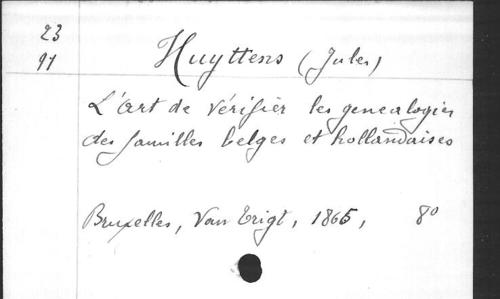 23
91
Huyttens (Jules)
L'art de vérifier les genealogies
des familles belges et hollandaises
Bruxelles, Van Trigt, 1865, 8°